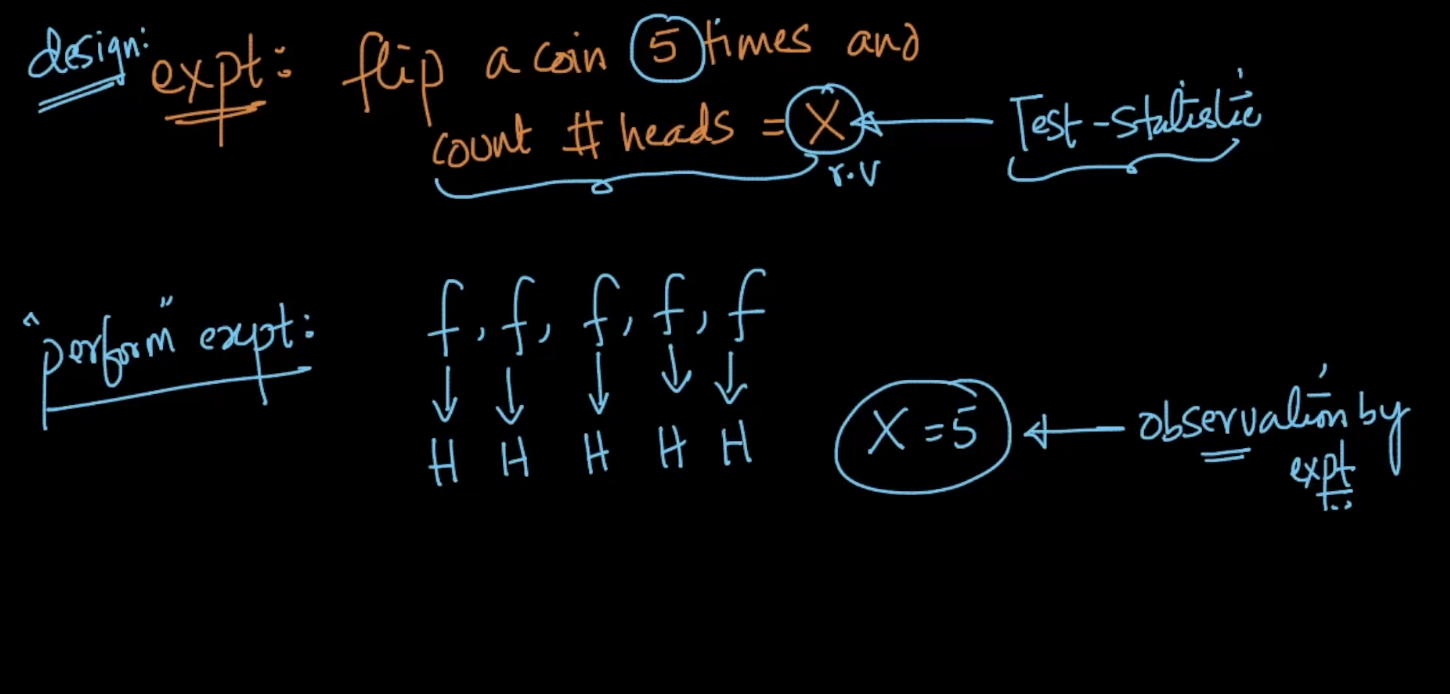 design: expt: flip a coin 5 times and
count # heads = X ← Test-statistic
r.v
"perform" expt: f, f, f, f, f
↓ ↓ ↓ ↓ ↓
H H H H H
X = 5 ← observation by
expt